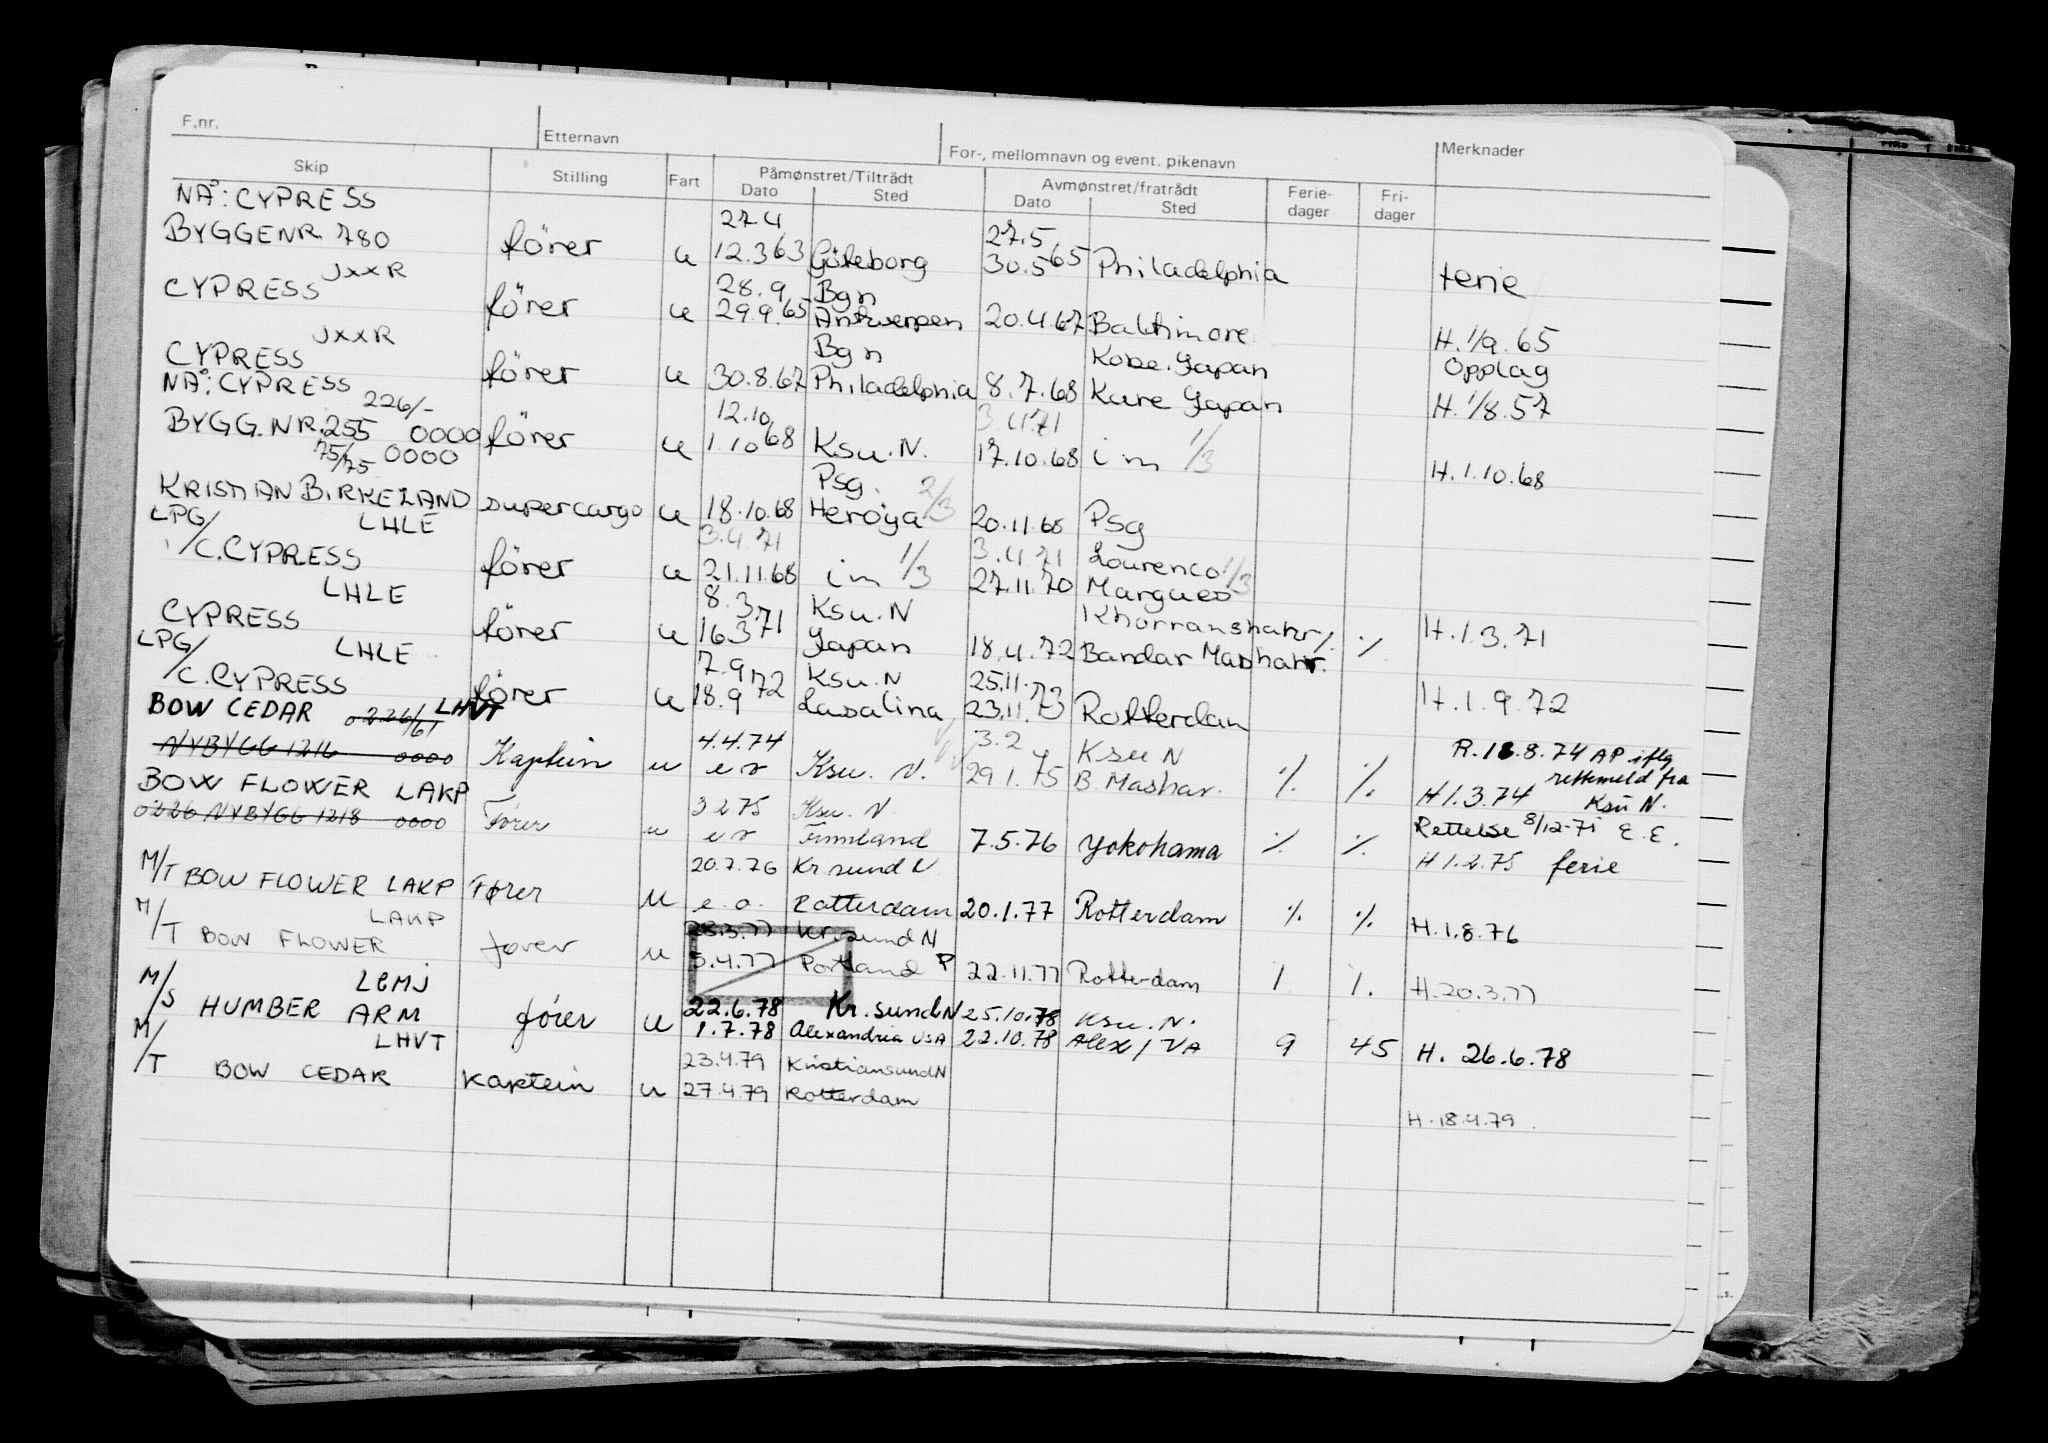 F.nr. Etternavn For-, mellomnavn og event. pikenavn Merknader
Skip Stilling Fart Påmønstret/Tiltrådt Avmønstret/fratrådt Ferie- Fri-
Dato Sted Dato Sted dager dager
NÅ: CYPRESS 27.4 27.5
BYGGENR. 780 förer u 12.3 63 Göteborg 30.5 65 Philadelphia ferie
JXXR 28.9 Bgn
CYPRESS förer u 29.9.65 Antwerpen 20.4.67 Baltimore H. 1/9.65
JXXR Bgn Kobe. Japan Opplag
CYPRESS förer u 30.8.67 Philadelphia 8.7.68 Kure Japan H. 1/8.57
NÅ: CYPRESS 226/- 12.10 3.4.71
BYGG.NR. 255 0000 förer u 1.10 68 Ksu.N. 17.10.68 im 1/3 H.1.10.68
75/75 0000 Psg. 2/3
KRISTIAN BIRKELAND supercargo u 18.10.68 Heröya 20.11.68 Psg
LPG/ LHLE 3.4.71 3.4.71 Lourenco 1/3
/C.CYPRESS förer u 21.11.68 im 1/3 27.11.70 Marques
LHLE 8.3 Ksu.N Khorramshahr
CYPRESS förer u 16.3 71 Japan 18.4.72 Bandar Mashahr. % % H.1.3.71
LPG/ LHLE 7.9 Ksu.N 25.11.
/C.CYPRESS förer u 18.9 72 Lasalina 23.11.73 Rotterdam H.1.9.72
BOW CEDAR 0226/61 LHVT 4.4.74 3.2 Ksu N R.18.8.74 AP iflg
NYBYGG 1216 0000 Kaptein u e o Ksu. N. 29.1.75 B. Mashar. % % H 1.3.74 rettemeld fra Ksu N.
BOW FLOWER LAKP 3 2 75 Ksu. N. Rettelse 8/12-75 E.E.
0226 NYBYGG 1218 0000 Fører u e o Finnland 7.5.76 Yokohama % % H 1.2.75 ferie
M/T BOW FLOWER LAKP Fører 20.7.76 Kr.sund N
u e.o. Rotterdam 20.1.77 Rotterdam % % H.1.8.76
M/T LAKP 28.3.77 Kr.sund N
BOW FLOWER fører u 5.4.77 Portland P 22.11.77 Rotterdam 1 1. H.20.3.77
M/S LEMJ 22.6.78 Kr.sund N 25.10.78 Ksu. N.
HUMBER ARM fører u 1.7.78 Alexandria USA 22.10.78 Alex / VA 9 45 H. 26.6.78
M/T LHVT 23.4.79 Kristiansund N
BOW CEDAR Kaptein u 27.4.79 Rotterdam H.18.4.79.